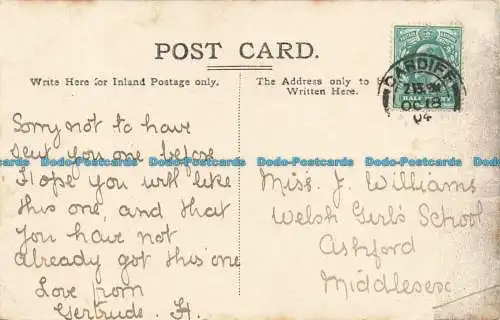 POST CARD.
Write Here for Inland Postage only.
The Address only to be
Written Here.
CARDIFF
OC 13
04
HALF PENNY
Sorry not to have
sent you one before
Hope you will like
this one, and that
you have not
already got this one
Love from
Gertrude. H.
Miss. J. Williams
Welsh Girl's School
Ashford
Middlesex
Dodo-Postcards Dodo-Postcards Dodo-Postcards Dodo-Postcards Dodo-Postcards